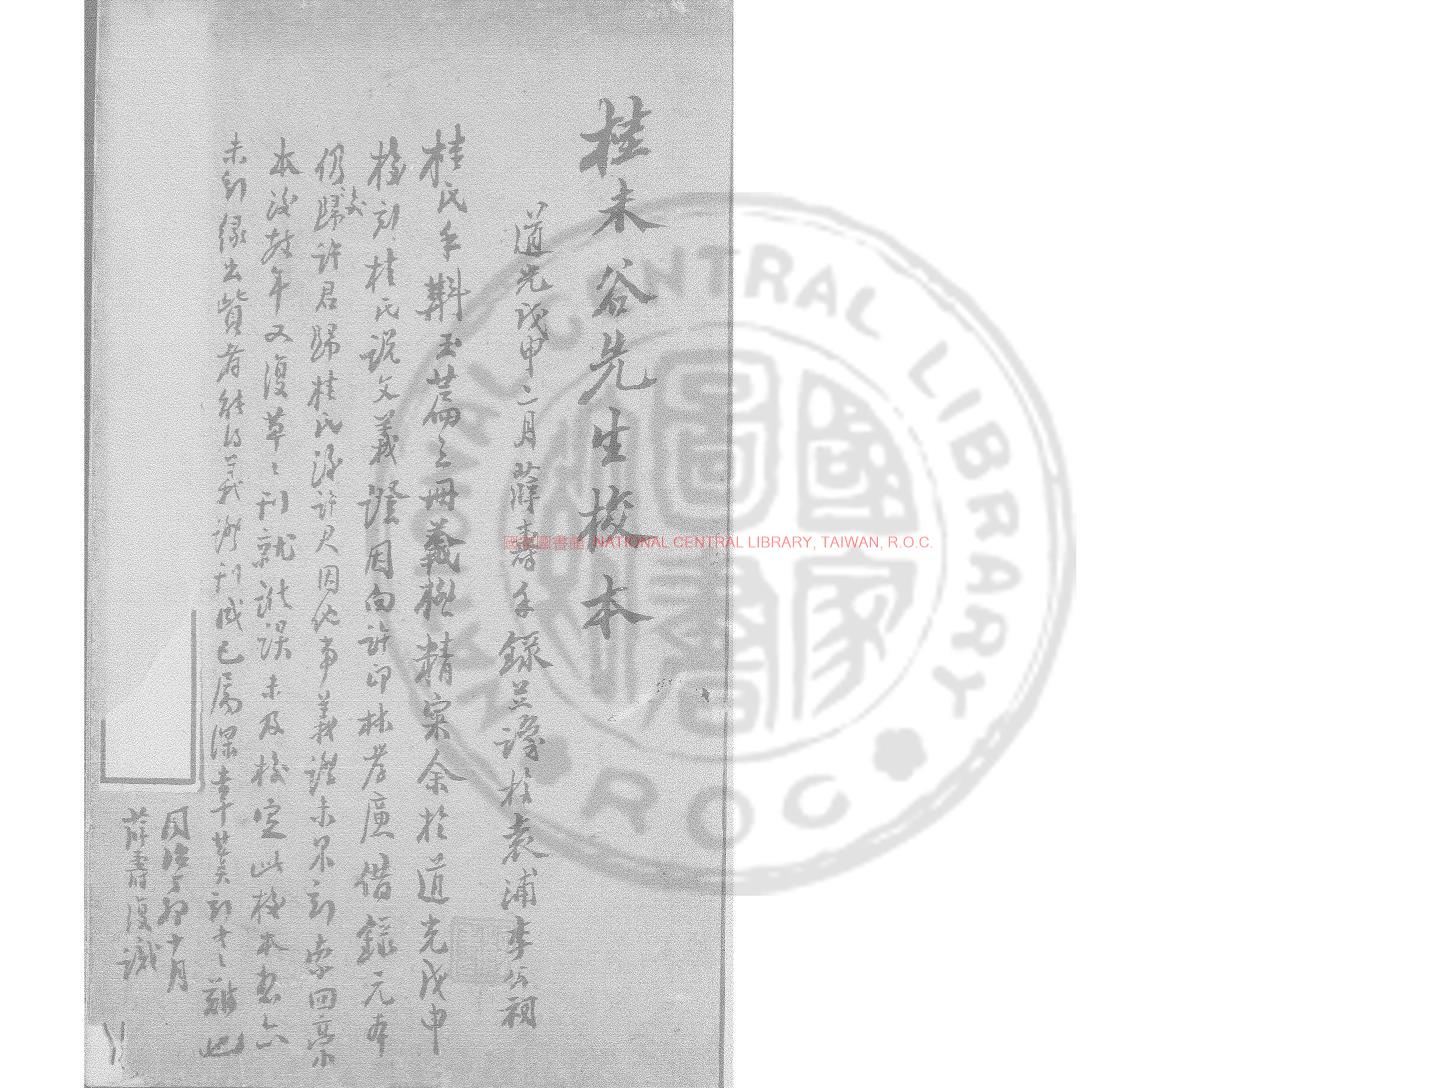 桂未谷先生校本
道光戊申二月薛壽手錄並識於袁浦李公祠
桂氏手斠玉篇三冊義極精案余於道光戊申
校刻桂氏說文義證因向許印林孝廉借錄元本
仍歸許君歸桂氏後許君因他事義證未不刻索回京
本後數年又復草〻刊就訛誤未及校定此校本亦
未刻緣出貲者能以義證刊成已屬深幸其刻書之難如此
同治丁卯十月
薛壽復識
國家圖書館 NATIONAL CENTRAL LIBRARY, TAIWAN, R.O.C.
NATIONAL CENTRAL LIBRARY
ROC
國家圖書館